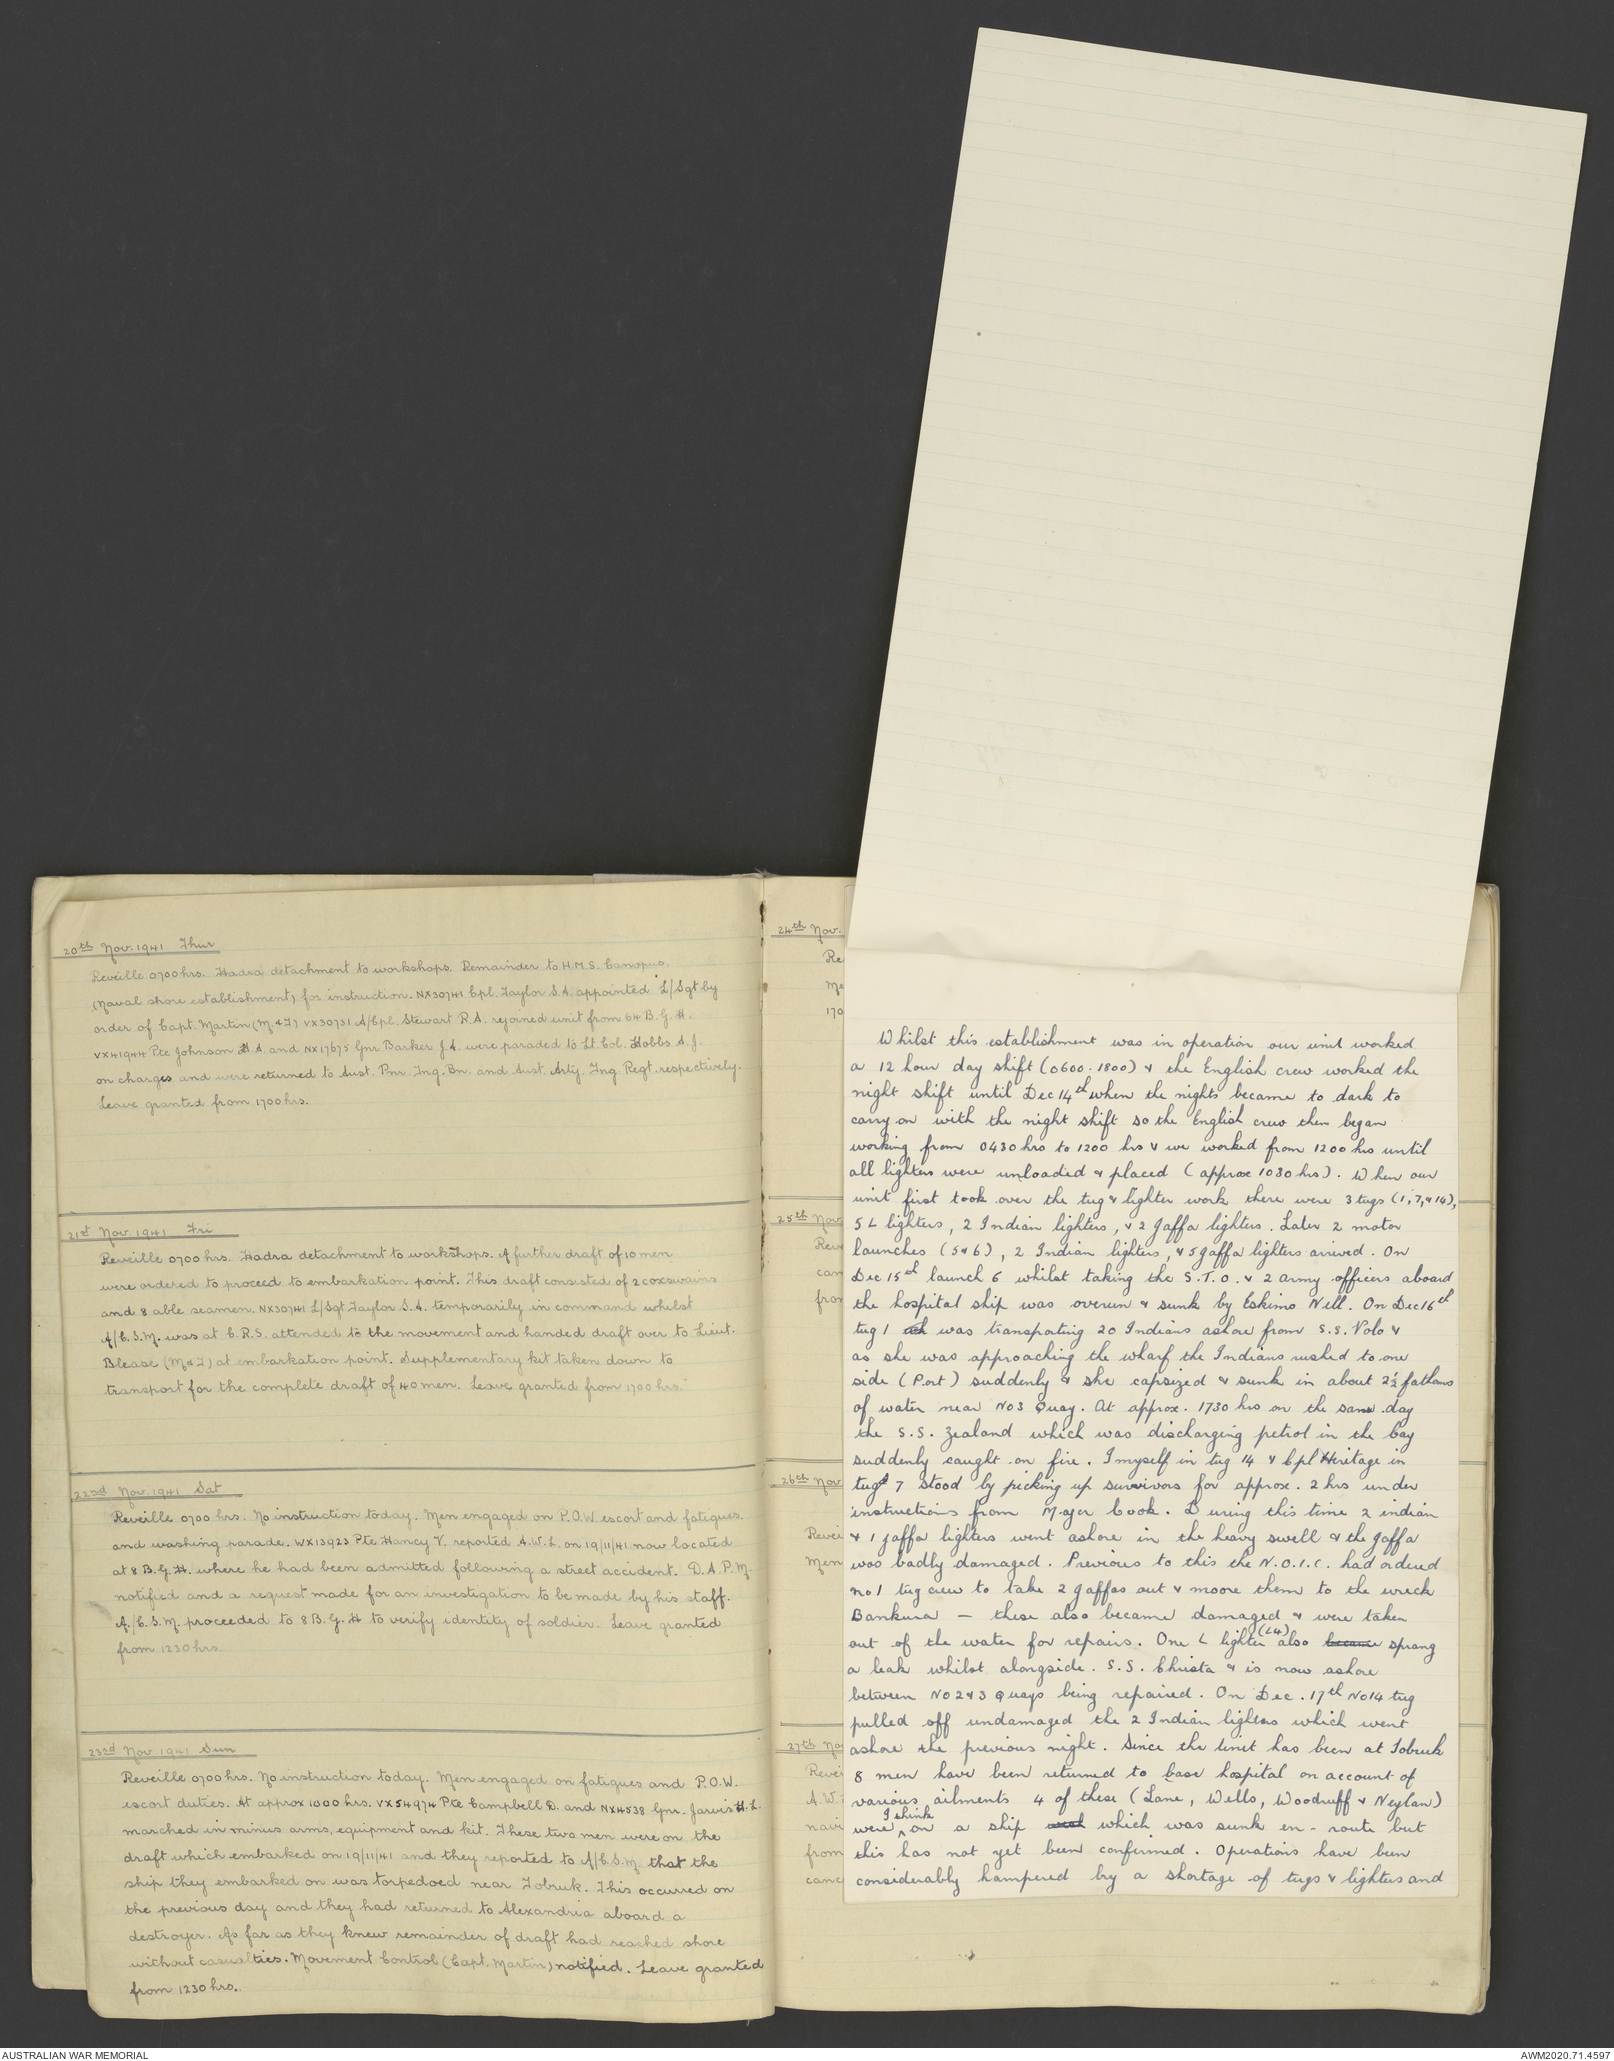 20th Nov. 1941 Thur
Reveille 0700 hrs. Hadra detachment to workshops. Remainder to H.M.S. Canopus.
(Naval shore establishment) for instruction. NX30741 Cpl. Taylor S.A. appointed L/Sgt by
order of Capt. Martin (M & T) VX30731 A/Cpl. Stewart R.A. rejoined unit from 64 B.G.H.
VX41944 Pte Johnson H.A. and NX17675 Gnr Barker J.A. were paraded to Lt. Col. Hobbs A.J.
on charges and were returned to Aust. Pnr. Tng. Bn. and Aust. Arty. Tng Regt. respectively.
Leave granted from 1700 hrs.
21st Nov. 1941 Fri
Reveille 0700 hrs. Hadra detachment to workshops. A further draft of 10 men
were ordered to proceed to embarkation point. This draft consisted of 2 coxswains
and 8 able seamen. NX30741 L/Sgt Taylor S.A. temporarily in command whilst
A/C.S.M. was at C.R.S. attended to the movement and handed draft over to Lieut.
Blease (M & T) at embarkation point. Supplementary kit taken down to
transport for the complete draft of 40 men. Leave granted from 1700 hrs.
22nd Nov. 1941 Sat
Reveille 0700 hrs. No instruction today. Men engaged on P.O.W. escort and fatigues.
and washing parade. WX13923 Pte Hancy V. reported A.W.L. on 19/11/41 now located
at 8 B.G.H. where he had been admitted following a street accident. D.A.P.M.
notified and a request made for an investigation to be made by his staff.
A/C.S.M. proceeded to 8 B.G.H to verify identity of soldier. Leave granted
from 1230 hrs.
23rd Nov 1941 Sun
Reveille 0700 hrs. No instruction today. Men engaged on fatigues and P.O.W.
escort duties. At approx 1000 hrs. VX54974 Pte Campbell D. and NX4538 Gnr. Jarvis H.L.
marched in minus arms, equipment and kit. These two men were on the
draft which embarked on 19/11/41 and they reported to A/C.S.M. that the
ship they embarked on was torpedoed near Tobruk. This occurred on
the previous day and they had returned to Alexandria aboard a
destroyer. As far as they knew remainder of draft had reached shore
without casualties. Movement Control (Capt. Martin) notified. Leave granted
from 1230 hrs.
24th Nov.
Re
170
25th Nov
Rev
can
from
26th Nov
Revei
Men
27th Nov
Revei
A.W.
nav
from
canc
Whilst this establishment was in operation our unit worked
a 12 hour day shift (0600 - 1800) & the English crew worked the
night shift until Dec 14th when the nights became to dark to
carry on with the night shift so the English crew then began
working from 0430 hrs to 1200 hrs & we worked from 1200 hrs until
all lighters were unloaded & placed (approx 1030 hrs). When our
unit first took over the tug & lighter work there were 3 tugs (1, 7, & 14),
5 L lighters, 2 Indian lighters, & 2 Jaffa lighters. Later 2 motor
launches (5 & 6), 2 Indian lighters, & 5 jaffa lighters arrived. On
Dec 15th launch 6 whilst taking the S.T.O. & 2 army officers aboard
the hospital ship was overun & sunk by Eskimo Nell. On Dec 16th
tug 1 was transporting 20 Indians ashore from S.S. Volo &
as she was approaching the wharf the Indians rushed to one
side (Port) suddenly & she capsized & sunk in about 2½ fathoms
of water near No 3 Quay. At approx. 1730 hrs on the same day
the S.S. Zealand which was discharging petrol in the bay
suddenly caught on fire. I myself in tug 14 & Cpl Heritage in
tug 7 stood by picking up survivors for approx. 2 hrs under
instructions from Major Cook. During this time 2 indian
& 1 jaffa lighters went ashore in the heavy swell & the jaffa
was badly damaged. Previous to this the N.O.I.C. had ordered
no 1 tug crew to take 2 jaffas out & moore them to the wreck
Bankura — these also became damaged & were taken
out of the water for repairs. One L lighter (L4) also became sprang
a leak whilst alongside. S.S. Christa & is now ashore
between No 2 & 3 Quays being repaired. On Dec. 17th No 14 tug
pulled off undamaged the 2 Indian lighters which went
ashore the previous night. Since the unit has been at Tobruk
8 men have been returned to base hospital on account of
various ailments 4 of these (Lane, Wells, Woodruff & Neylan)
were I think on a ship which was sunk en-route but
this has not yet been confirmed. Operations have been
considerably hampered by a shortage of tugs & lighters and
AUSTRALIAN WAR MEMORIAL
AWM2020.71.4597